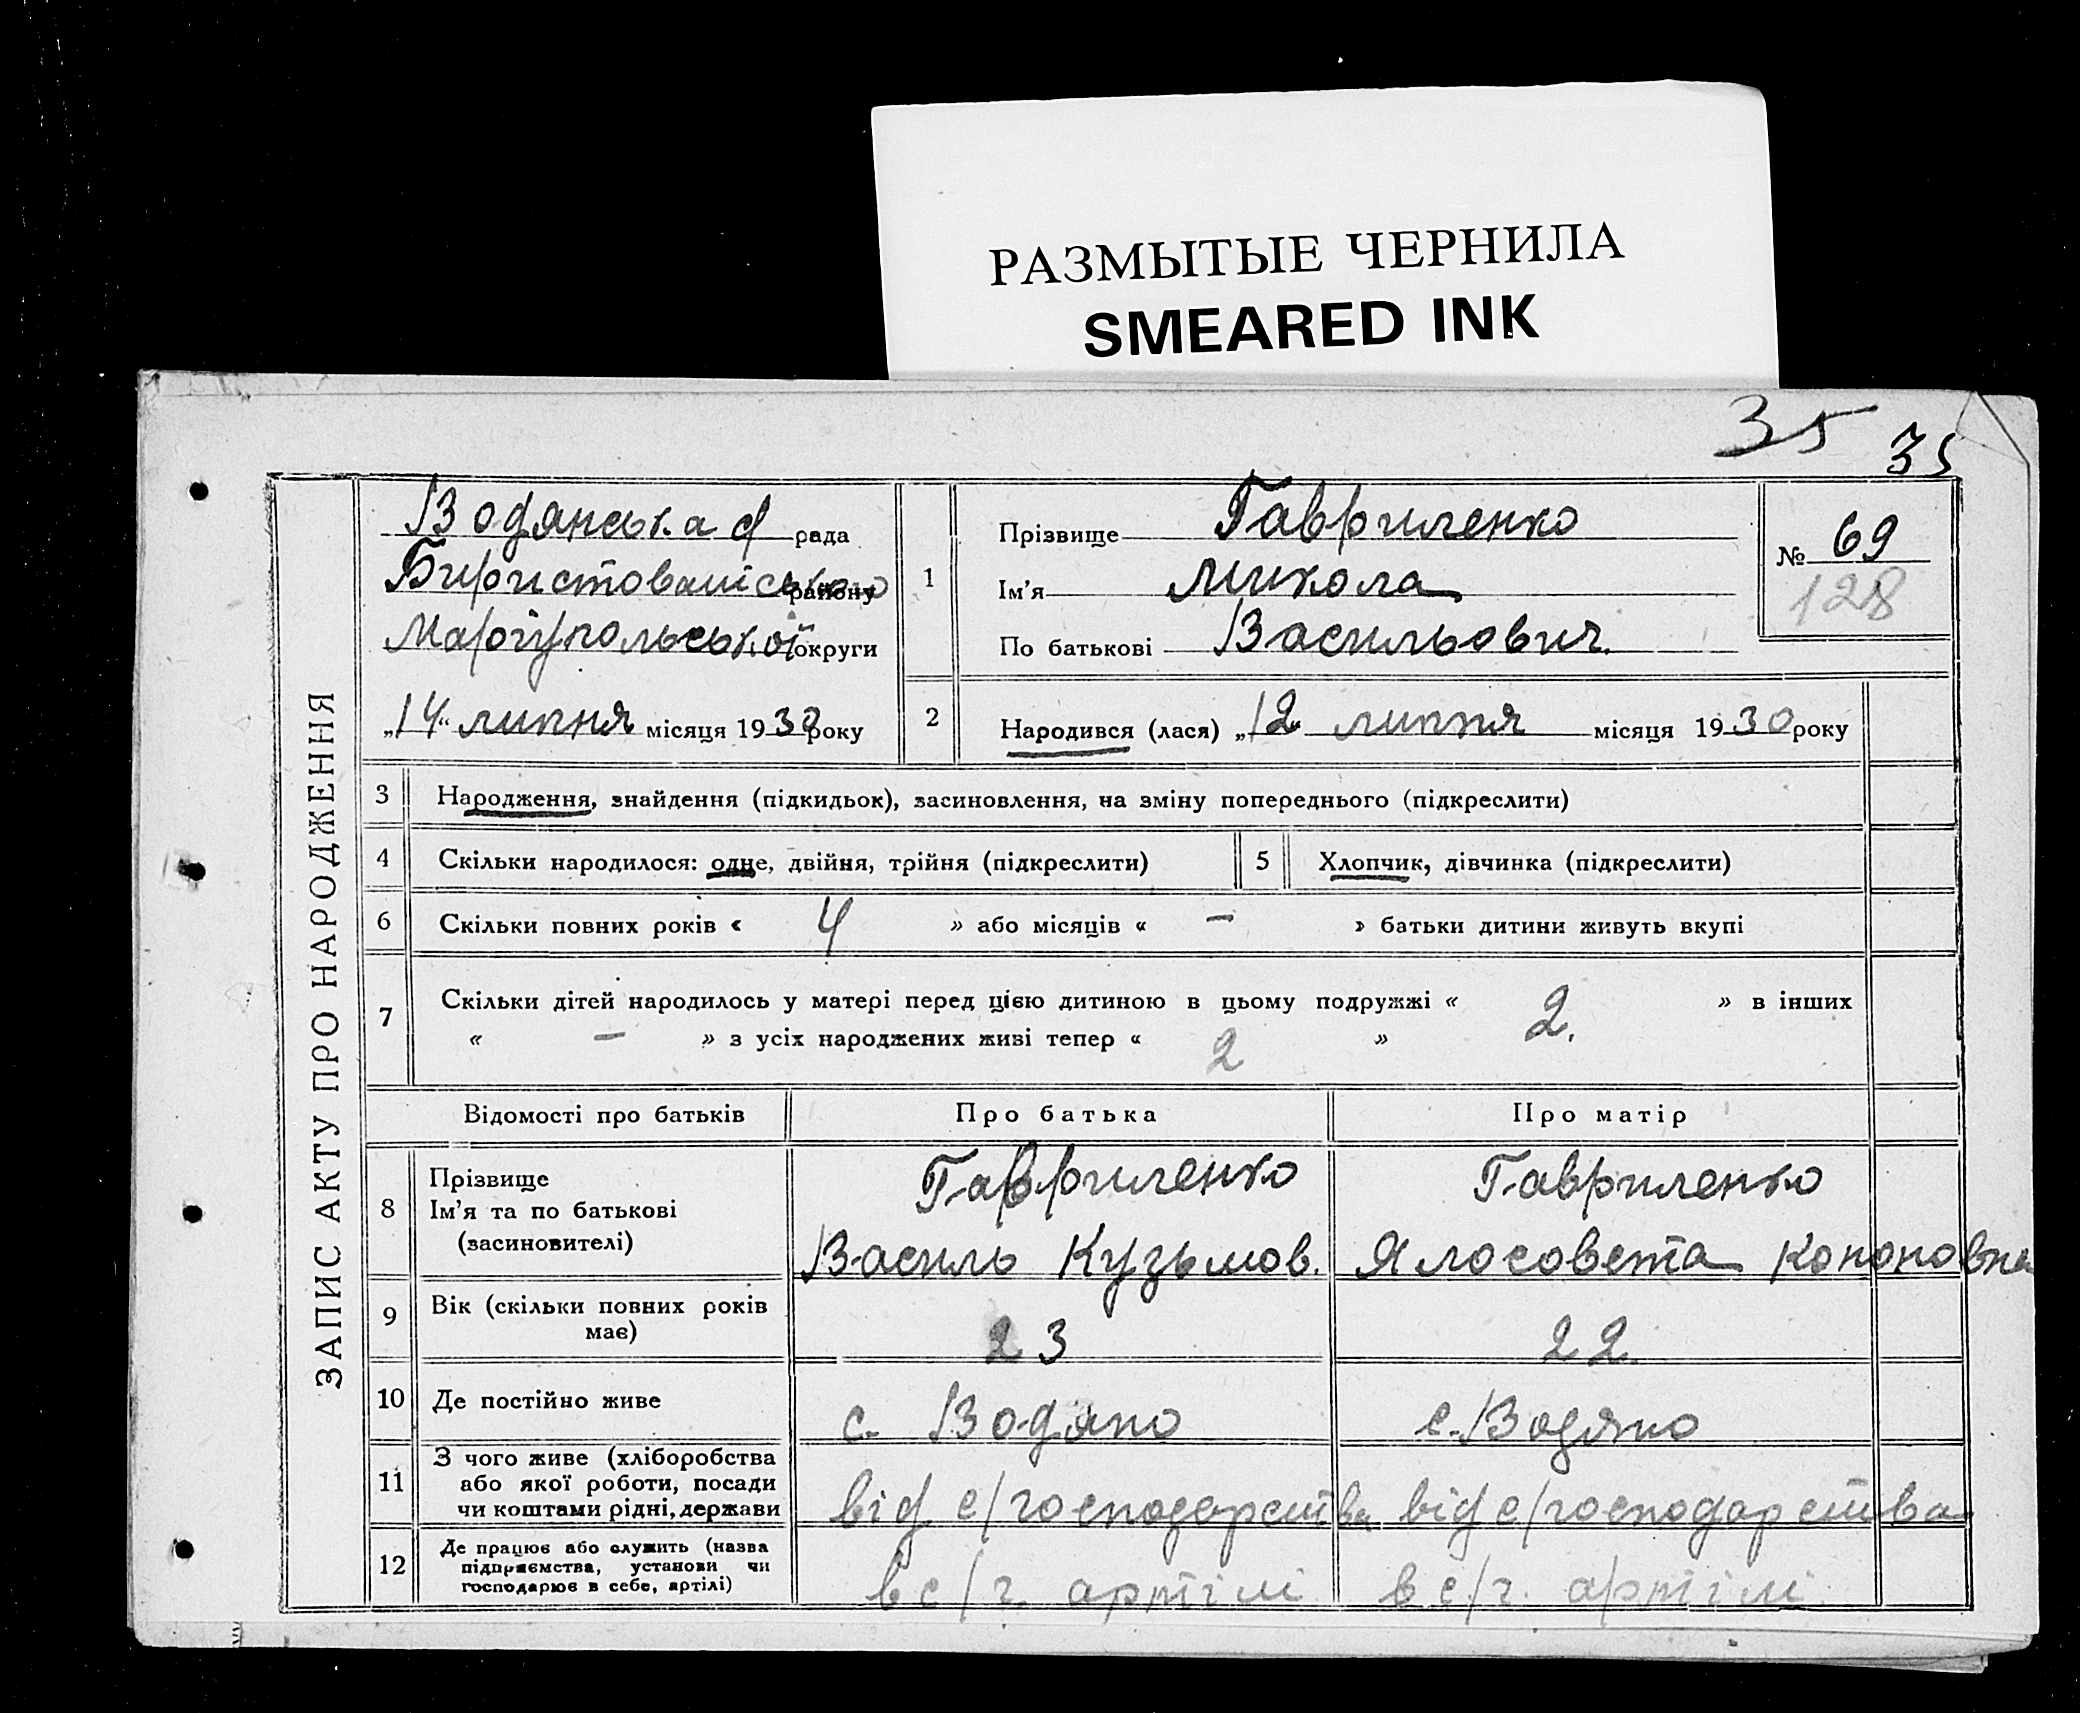 РАЗМЫТЫЕ ЧЕРНИЛА
SMEARED INK
35 35
ЗАПИС АКТУ ПРО НАРОДЖЕННЯ
Водянська с/ рада
району
Маріупольської округи
„14“ липня місяця 1930 року
1
Прізвище Гавриленко
Ім’я Микола
По батькові Васильович
№ 69
128
2
Народився (лася) „12“ липня місяця 1930 року
3 Народження, знайдення (підкидьок), засиновлення, на зміну попереднього (підкреслити)
4 Скільки народилося: одне, двійня, трійня (підкреслити) 5 Хлопчик, дівчинка (підкреслити)
6 Скільки повних років « 4 » або місяців « – » батьки дитини живуть вкупі
7 Скільки дітей народилось у матері перед цією дитиною в цьому подружжі « 2. » в інших
« – » з усіх народжених живі тепер « 2 »
Відомості про батьків Про батька Про матір
8 Прізвище
Ім’я та по батькові
(засиновителі)
Гавриленко
Василь Кузьмов.
Гавриленко
Ялосовета Кононовна
9 Вік (скільки повних років
має)
23 22
10 Де постійно живе с. Водяно с. Водяно
11 З чого живе (хліборобства
або якої роботи, посади
чи коштами рідні, держави
від с/господарства від с/господарства
12 Де працює або служить (назва
підприємства, установи чи
господарює в себе, артілі)
в с/г. артілі в с/г. артілі